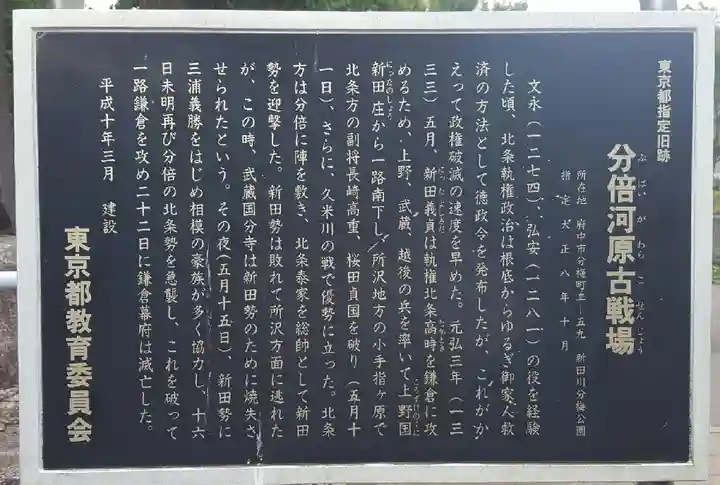 東京都指定旧跡
分倍河原古戦場
ぶばいがわらこせんじょう
所在地 府中市分梅町五―五九 新田川分梅公園
指定 大正八年十月
文永(一二七四)、弘安(一二八一)の役を経験
した頃、北条執権政治は根底からゆるぎ御家人救
済の方法として徳政令を発布したが、これがか
えって政権破滅の速度を早めた。元弘三年(一三
三三)五月、新田義貞は執権北条高時を鎌倉に攻
めるため、上野、武蔵、越後の兵を率いて上野国
新田庄から一路南下し、所沢地方の小手指ヶ原で
北条方の副将長崎高重、桜田貞国を破り(五月十
一日)、さらに、久米川の戦で優勢に立った。北条
方は分倍に陣を敷き、北条泰家を総帥として新田
勢を迎撃した。新田勢は敗れて所沢方面に逃れた
が、この時、武蔵国分寺は新田勢のために焼失さ
せられたという。その夜(五月十五日)、新田勢に
三浦義勝をはじめ相模の豪族が多く協力し、十六
日未明再び分倍の北条勢を急襲し、これを破って
一路鎌倉を攻め二十二日に鎌倉幕府は滅亡した。
平成十年三月 建設
東京都教育委員会